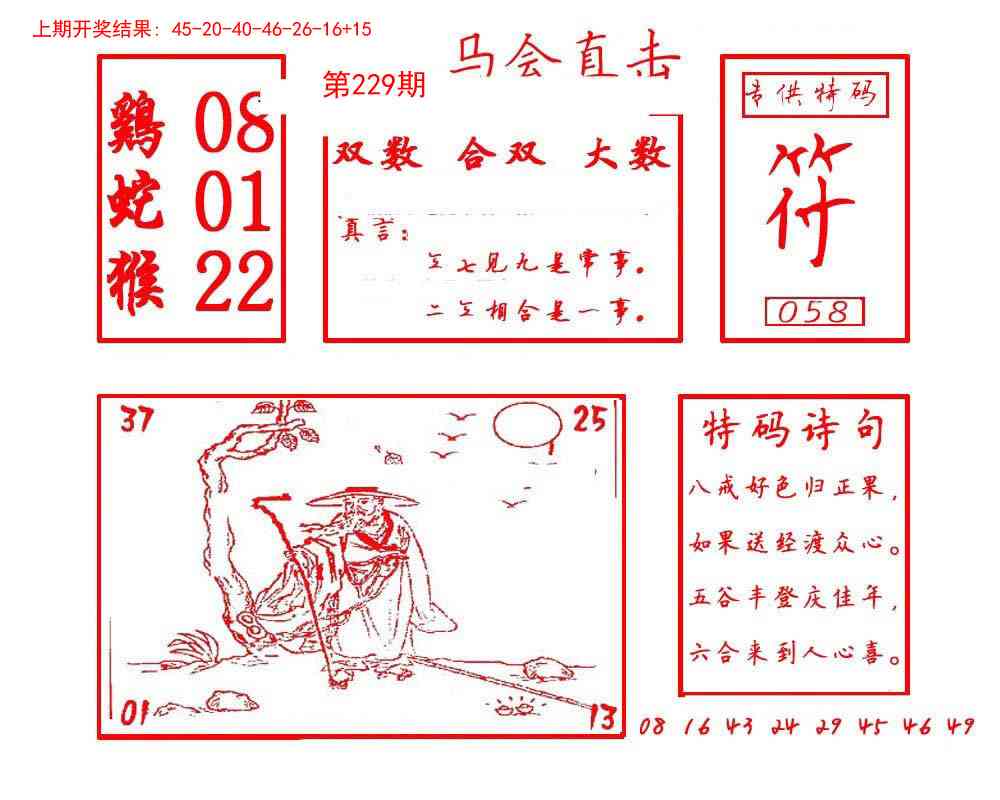 上期开奖结果：45-20-40-46-26-16+15
马会直击
第229期
鷄 08
蛇 01
猴 22
双数 合双 大数
真言：
三七见九是常事。
二三相合是一事。
专供特码
符
058
37
25
01
13
特码诗句
八戒好色归正果，
如果送经渡众心。
五谷丰登庆佳年，
六合来到人心喜。
08 16 43 24 29 45 46 49